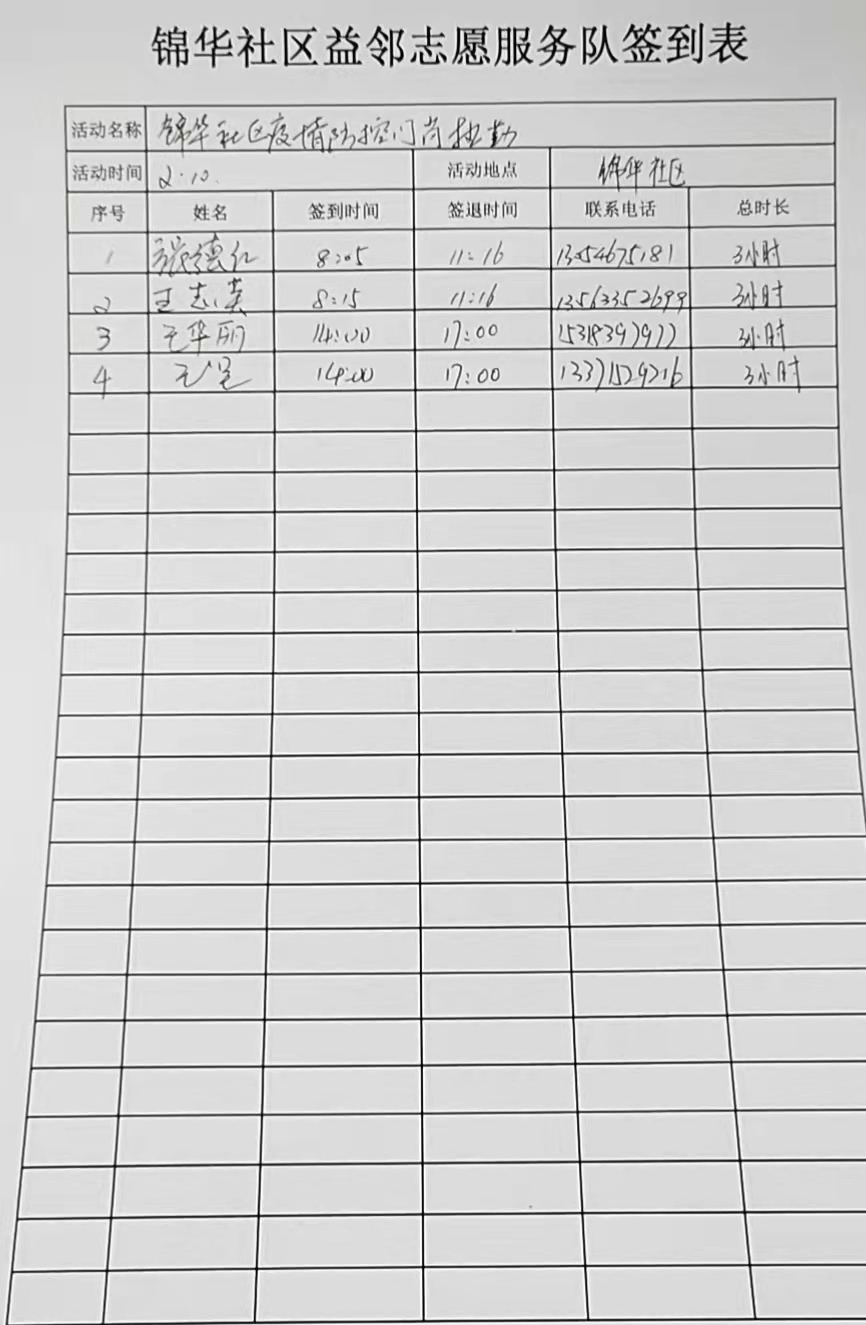 锦华社区益邻志愿服务队签到表
活动名称 锦华社区疫情防控门岗执勤
活动时间 2.10. 活动地点 锦华社区
序号 姓名 签到时间 签退时间 联系电话 总时长
1 张德仁 8:05 11:16 13054675181 3小时
2 王志英 8:15 11:16 13563352699 3小时
3 华丽 14:00 17:00 15318397977 3小时
4 14:00 17:00 13371529216 3小时